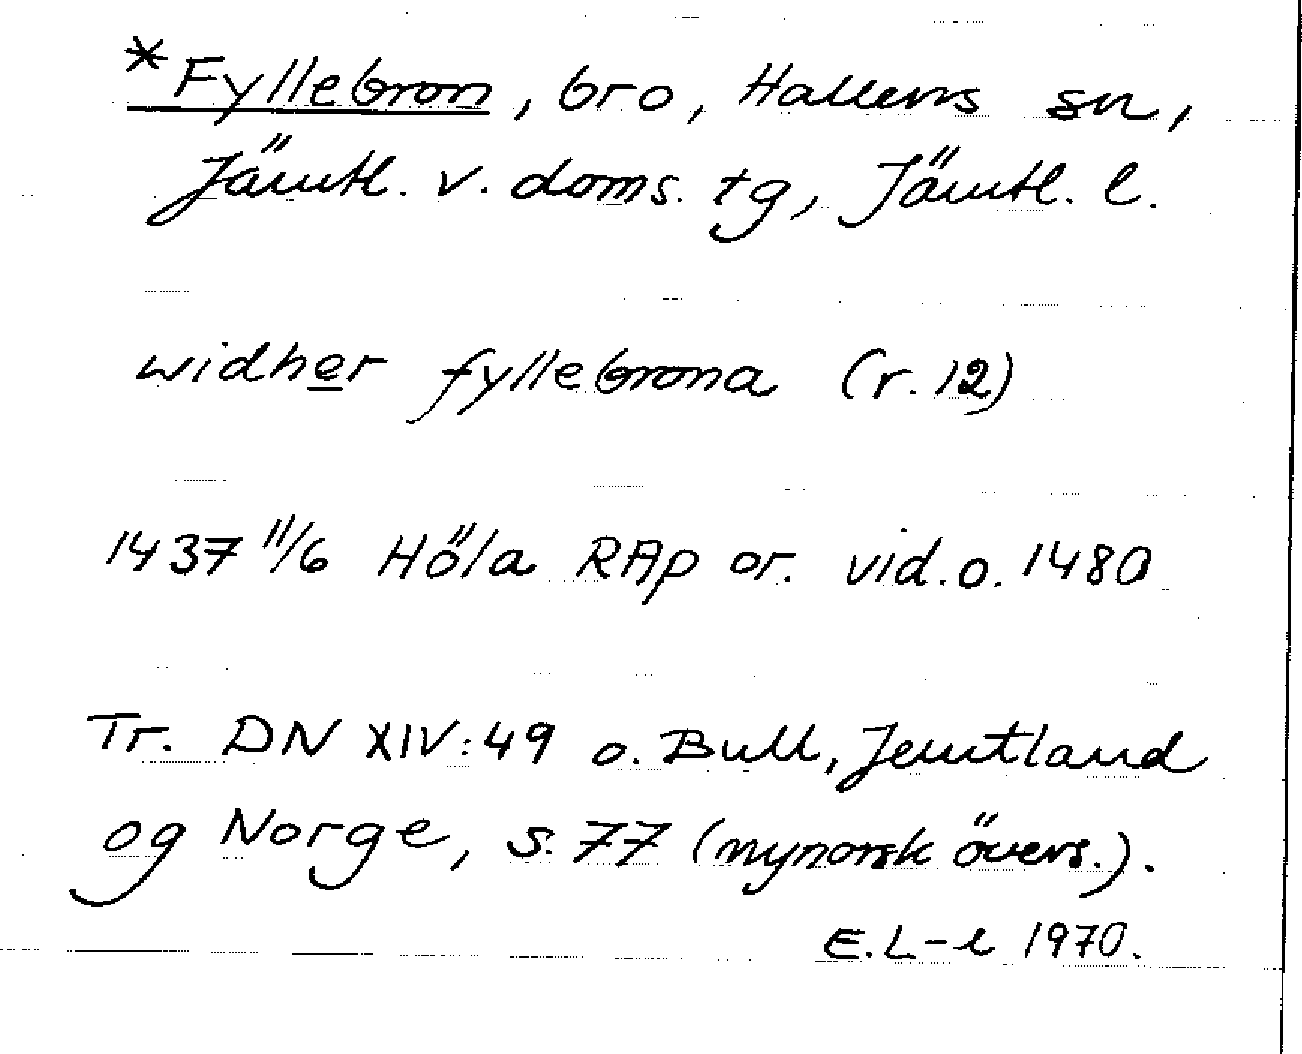 *Fyllebron, bro, Hallens sn,
Jämtl. v. doms. tg, Jämtl. l.
widher fyllebrona (r. 12)
1437 11/6 Höla RAp or. vid. o. 1480
Tr. DN XIV:49 o. Bull, Jemtland
og Norge, s. 77 (nynorsk övers.).
E. L-l 1970.